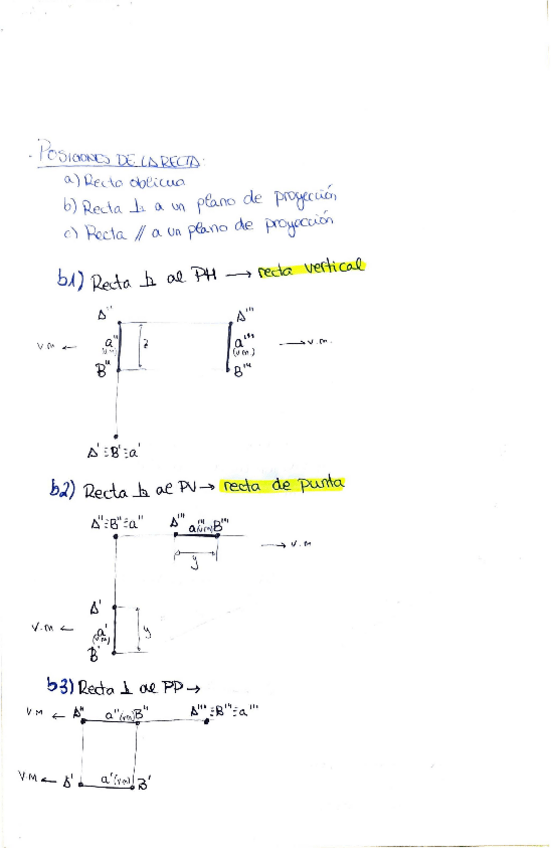 · POSICIONES DE LA RECTA·
a) Recta oblicua
b) Recta ⊥ a un plano de proyección
c) Recta // a un plano de proyección
b1) Recta ⊥ al PH → recta vertical
A" A'''
V.M ← a" (VM) z a''' (VM) → V.M.
B" B'''
A'≡B'≡a'
b2) Recta ⊥ al PV → recta de punta
A"≡B"≡a" A''' a'''(VM) B'''
→ V.M
y
A'
V.M ← a' (VM) y
B'
b3) Recta ⊥ al PP →
VM ← A" a"(VM) B" A'''≡B'''≡a'''
V.M ← A' a'(VM) B'